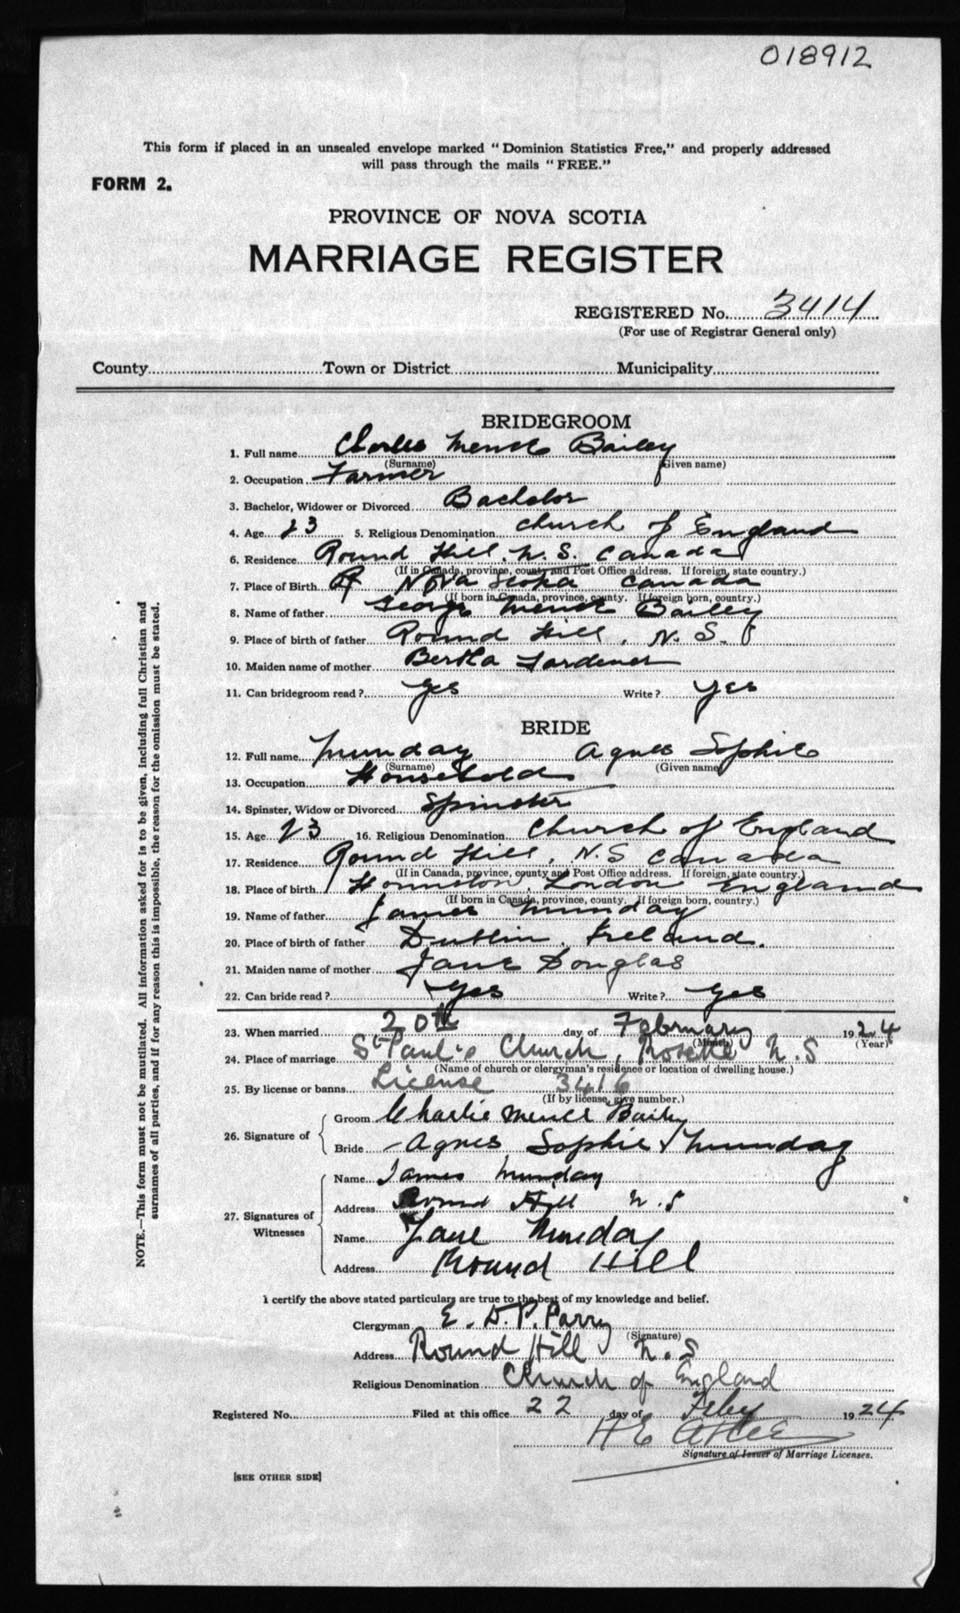 018912
This form if placed in an unsealed envelope marked "Dominion Statistics Free," and properly addressed
will pass through the mails "FREE."
FORM 2.
PROVINCE OF NOVA SCOTIA
MARRIAGE REGISTER
REGISTERED No. 3414
(For use of Registrar General only)
County Town or District Municipality
BRIDEGROOM
1. Full name Charles Menck Bailey
(Surname) (Given name)
2. Occupation Farmer
3. Bachelor, Widower or Divorced Bachelor
4. Age 23 5. Religious Denomination Church of England
6. Residence Round Hill, N.S. Canada
(If in Canada, province, county and Post Office address. If foreign, state country.)
7. Place of Birth Nova Scotia Canada
(If born in Canada, province, county. If foreign born, country.)
8. Name of father George Menck Bailey
9. Place of birth of father Round Hill, N.S.
10. Maiden name of mother Bertha Gardener
11. Can bridegroom read? Yes Write? Yes
BRIDE
12. Full name Munday Agnes Sophie
(Surname) (Given name)
13. Occupation Household
14. Spinster, Widow or Divorced Spinster
15. Age 23 16. Religious Denomination Church of England
17. Residence Round Hill, N.S Canada
(If in Canada, province, county and Post Office address. If foreign, state country.)
18. Place of birth London England
(If born in Canada, province, county. If foreign born, country.)
19. Name of father James Munday
20. Place of birth of father Dublin, Ireland.
21. Maiden name of mother Jane Douglas
22. Can bride read? Yes Write? Yes
23. When married 20th day of February 1924
(Month) (Year)
24. Place of marriage St Paul's Church, Rosette N.S
(Name of church or clergyman's residence or location of dwelling house.)
25. By license or banns License 3416
(If by license, give number.)
26. Signature of Groom Charlie Menck Bailey
Bride Agnes Sophie Munday
27. Signatures of Witnesses Name James Munday
Address Round Hill N.S
Name Jane Munday
Address Round Hill
I certify the above stated particulars are true to the best of my knowledge and belief.
Clergyman E. D. P. Parry
(Signature)
Address Round Hill N.S
Religious Denomination Church of England
Registered No. Filed at this office 22 day of Feby 1924
H E
Signature of Issuer of Marriage Licenses.
[SEE OTHER SIDE]
NOTE.—This form must not be mutilated. All information asked for is to be given, including full Christian and
surnames of all parties, and if for any reason this is impossible, the reason for the omission must be stated.